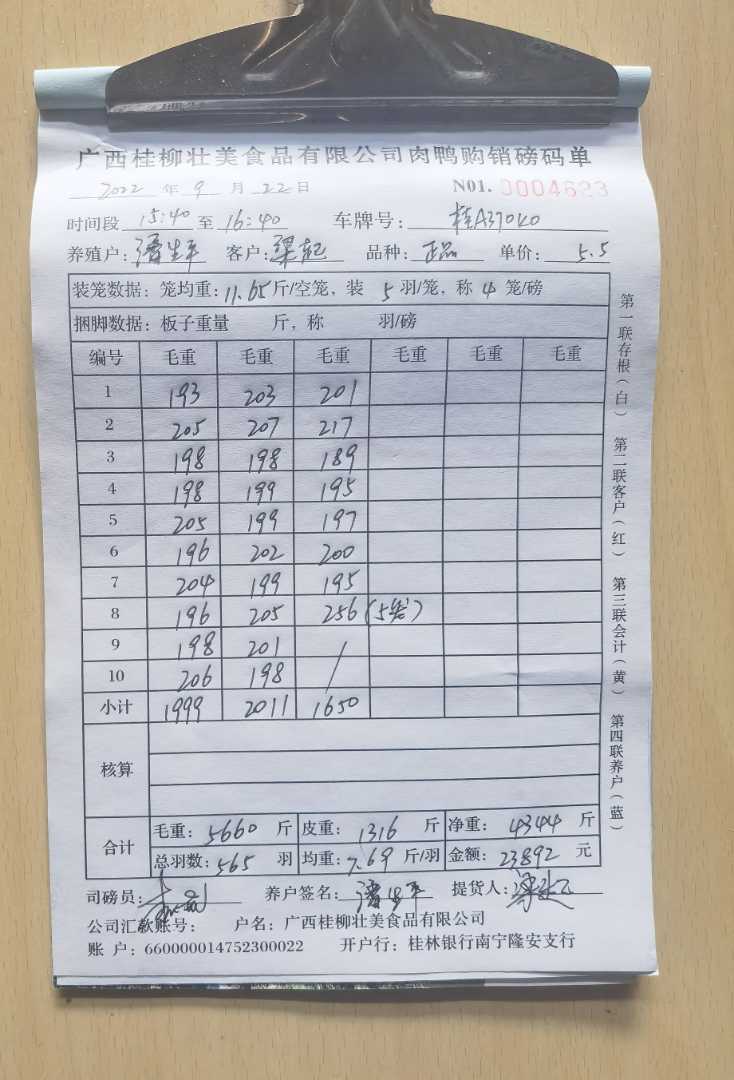 广西桂柳壮美食品有限公司肉鸭购销磅码单
2022 年 9 月 22 日 N01. 0004623
时间段 15:40 至 16:40 车牌号: 桂A370K0
养殖户: 潘生平 客户: 梁起 品种: 正品 单价: 5.5
装笼数据: 笼均重: 11.65 斤/空笼, 装 5 羽/笼, 称 4 笼/磅
捆脚数据: 板子重量 斤, 称 羽/磅
编号 毛重 毛重 毛重 毛重 毛重 毛重
1 193 203 201
2 205 207 217
3 198 198 189
4 198 199 195
5 205 199 197
6 196 202 200
7 204 199 195
8 196 205 256 (5笼)
9 198 201 /
10 206 198
小计 1999 2011 1650
核算
合计
毛重: 5660 斤 皮重: 1316 斤 净重: 4344 斤
总羽数: 565 羽 均重: 7.69 斤/羽 金额: 23892 元
司磅员: 养户签名: 潘生平 提货人:
公司汇款账号: 户名: 广西桂柳壮美食品有限公司
账 户: 660000014752300022 开户行: 桂林银行南宁隆安支行
第一联存根(白) 第二联客户(红) 第三联会计(黄) 第四联养户(蓝)